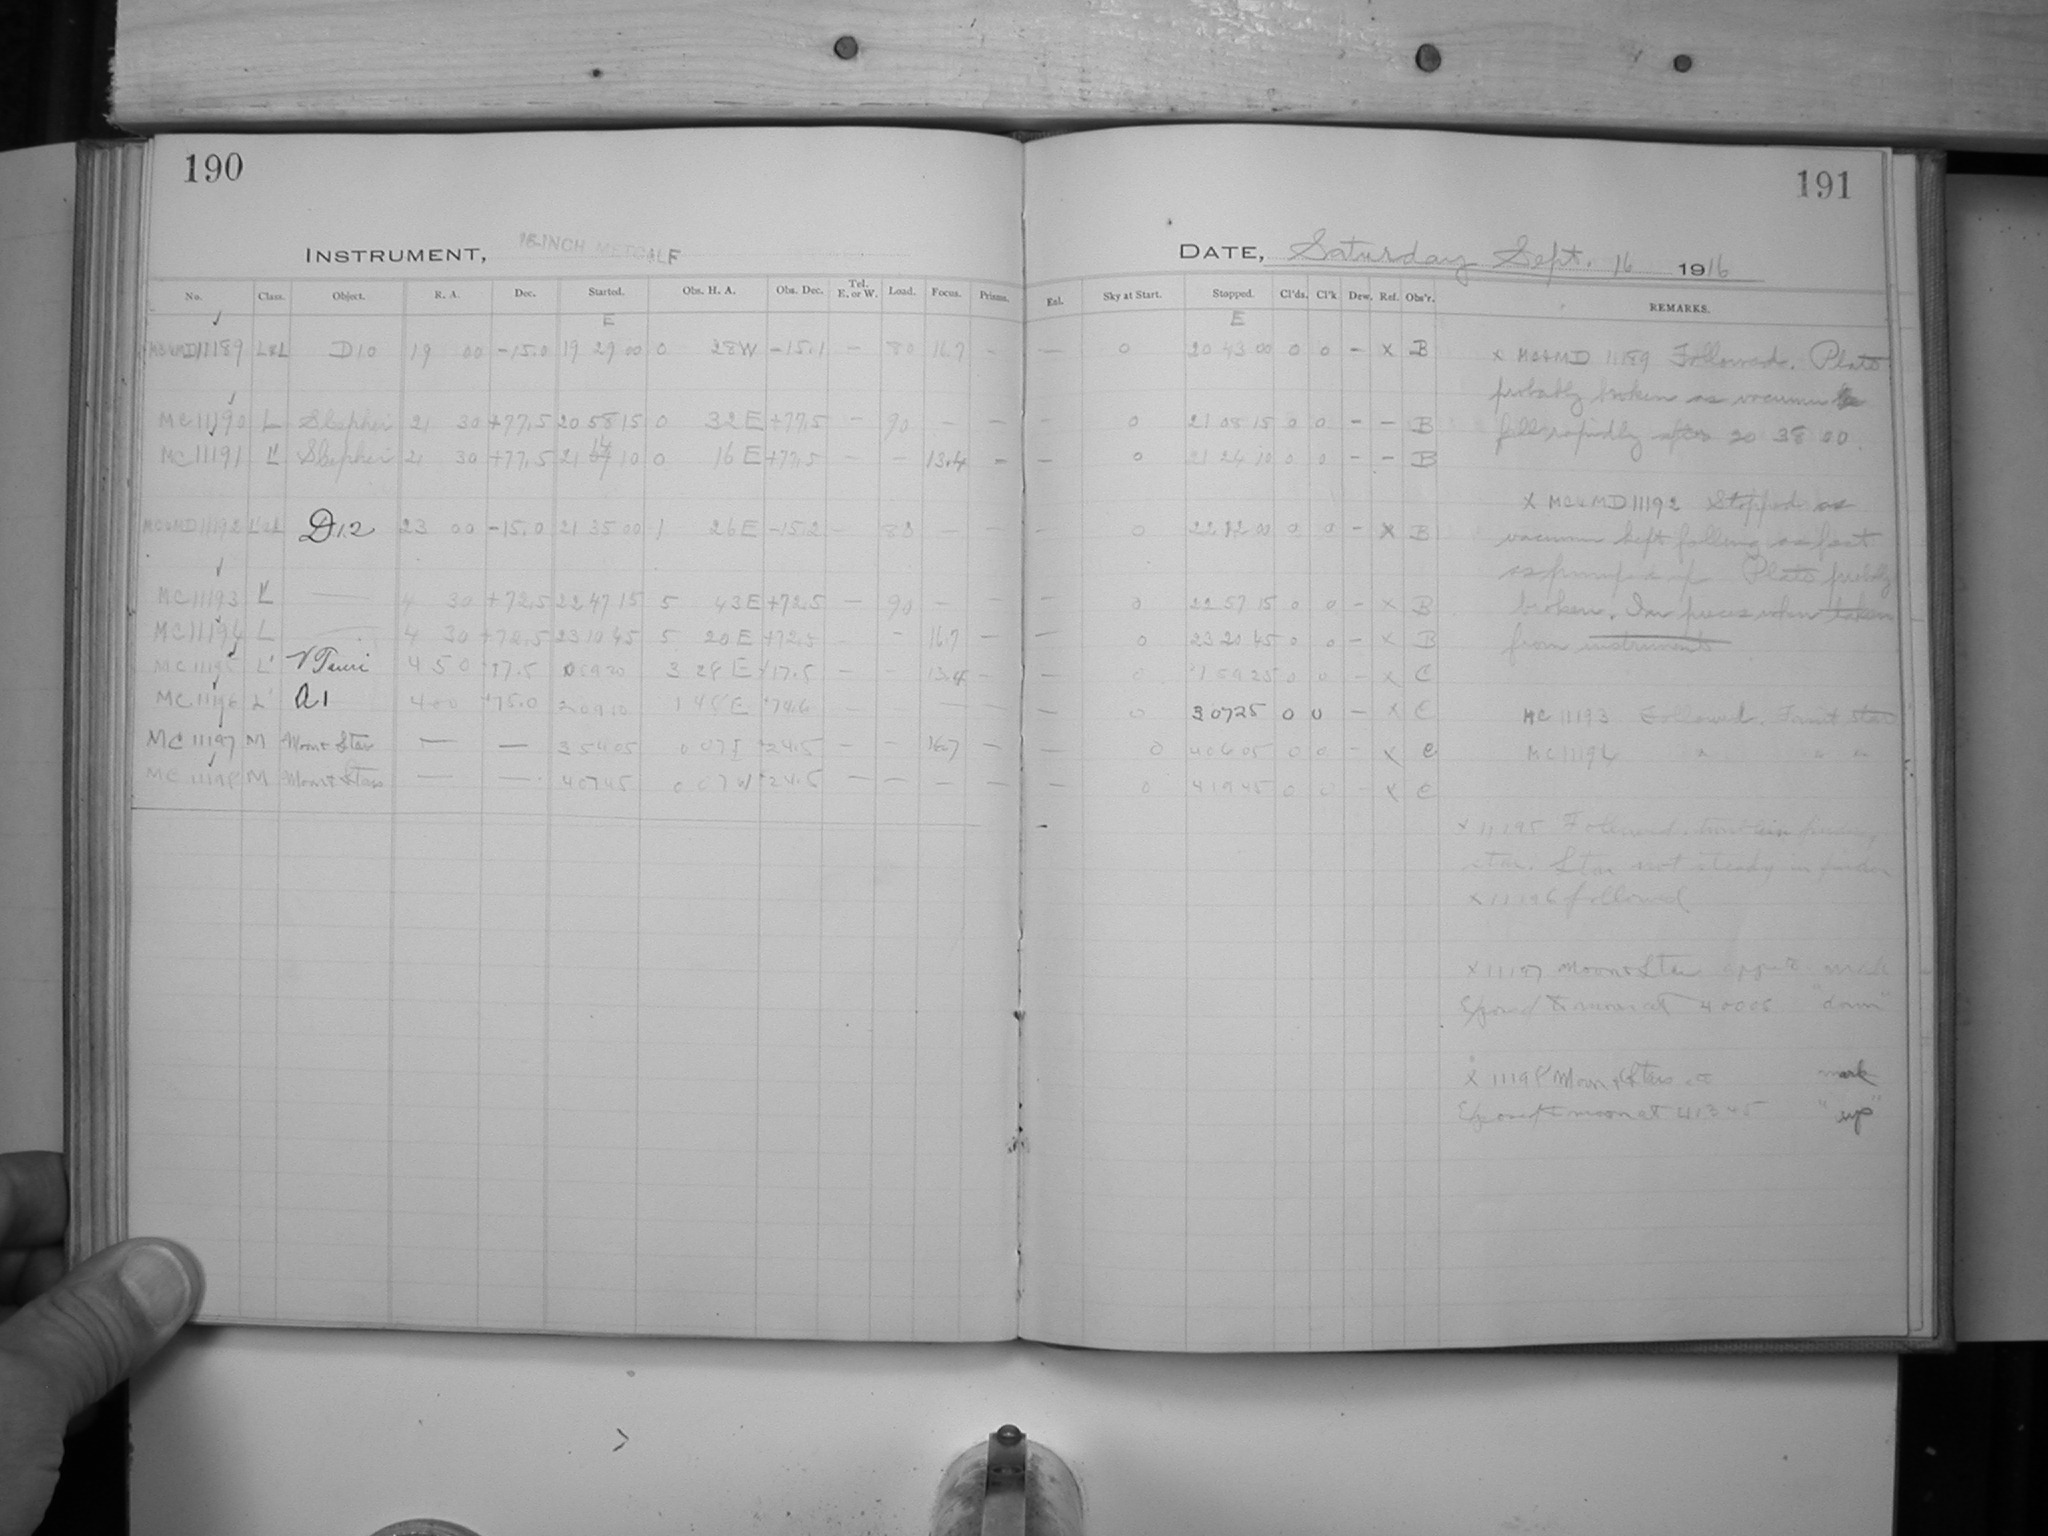 190
191
INSTRUMENT, 16-INCH METCALF
DATE, Saturday Sept. 16 1916
No. Class. Object. R. A. Dec. Started. Obs. H. A. Obs. Dec. Tel. E. or W. Load. Focus. Prisms. Enl. Sky at Start. Stopped. Cl'ds. Cl'k Dew. Ref. Obs'r. REMARKS.
E E
MC&MD11189 L&L D10 19 00 -15.0 19 29 00 0 28W -15.1 - 80 16.7 - - 0 20 43 00 0 0 - X B
MC11190 L 21 30 +77.5 20 58 15 0 32E +77.5 - 90 - - 0 21 08 15 0 0 - - B
MC11191 L' 21 30 +77.5 21 14 10 0 16E +77.5 - - 13.4 - - 0 21 24 10 0 0 - - B
MC&MD11192 L'&L D12 23 00 -15.0 21 35 00 1 26E -15.2 - 80 - - - 0 22 12 00 0 0 - X B
MC11193 L' — 4 30 +72.5 22 47 15 5 43E +72.5 - 90 - - - 0 22 57 15 0 0 - X B
MC11194 L — 4 30 +72.5 23 10 45 5 20E +72.5 - - 16.7 - - 0 23 20 45 0 0 - X B
MC11195 L' V Tauri 4 50 +17.5 3 28 E +17.5 - - 13.4 - - 0 1 59 25 0 0 - X C
MC11196 L' A1 4 00 +75.0 2 09 10 1 48E +74.6 - - - - 0 3 07 25 0 0 - X C
MC11197 M Moon & Star — — 3 54 05 0 07E +24.5 - - 16.7 - - 0 4 06 05 0 0 - X C
MC11198 M Moon & Stars — — 4 07 45 0 07W +24.5 - - - - - 0 4 19 45 0 0 - X C
X MC&MD 11189 Followed. Plate
probably broken as vacuum
fell rapidly after 20 38 00.
X MC&MD11192 Stopped as
vacuum kept falling as fast
as pumped up Plate probably
broken. In pieces when taken
from instrument
MC 11193 Followed. Faint star
MC11194 " " "
X 11195 Followed.
star. Star not steady in finder
X 11196 followed
X 11197 Moon & Star mark
Exposed to moon at 4 00 05 "down"
X 11198 Moon & Stars mark
Exposed to moon at 4 13 45 "up"